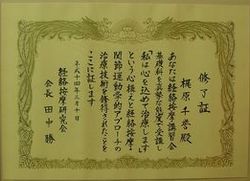 修了証
梶原千誉殿
あなたは経絡按摩講習会
基礎科を真摯な態度で受講し
「私は心を込めて治療します」
という心構えと経絡按摩・
関節運動学的アプローチの
治療技術を修得されたことを
ここに証します
平成十四年三月十日
経絡按摩研究会
会長 田中勝